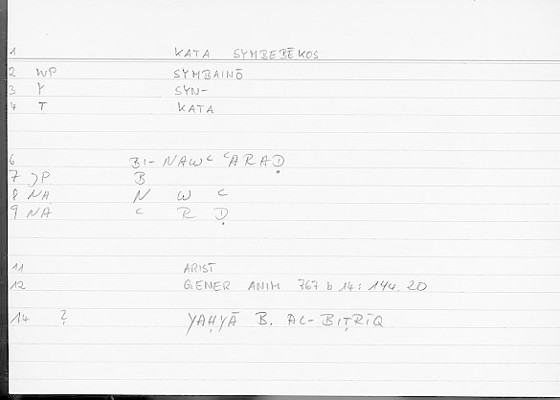 1 KATA SYMBEBĒKOS
2 WP SYMBAINŌ
3 Y SYN-
4 T KATA
6 BI-NAWʿ ʿARAḌ
7 JP B
8 NA N W ʿ
9 NA ʿ R Ḍ
11 ARIST
12 GENER ANIM 767 b 14: 144.20
14 ? YAḤYĀ B. AL-BIṬRĪQ